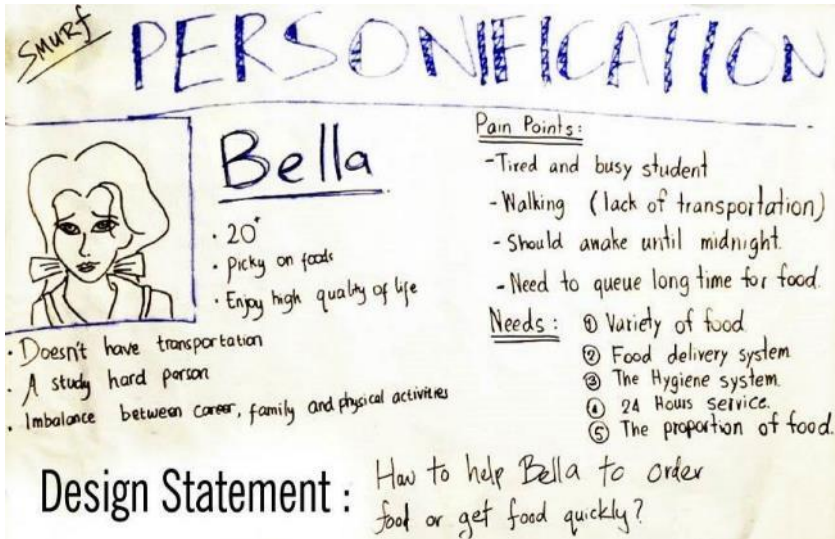 SMURF
PERSONIFICATION
Bella
· 20⁺
· Picky on foods
· Enjoy high quality of life
· Doesn't have transportation
· A study hard person
· Imbalance between career, family and physical activities
Pain Points:
- Tired and busy student
- Walking (lack of transportation)
- Should awake until midnight.
- Need to queue long time for food.
Needs: ① Variety of food
② Food delivery system
③ The Hygiene system.
④ 24 Hours service.
⑤ The proportion of food.
Design Statement : How to help Bella to order
food or get food quickly?